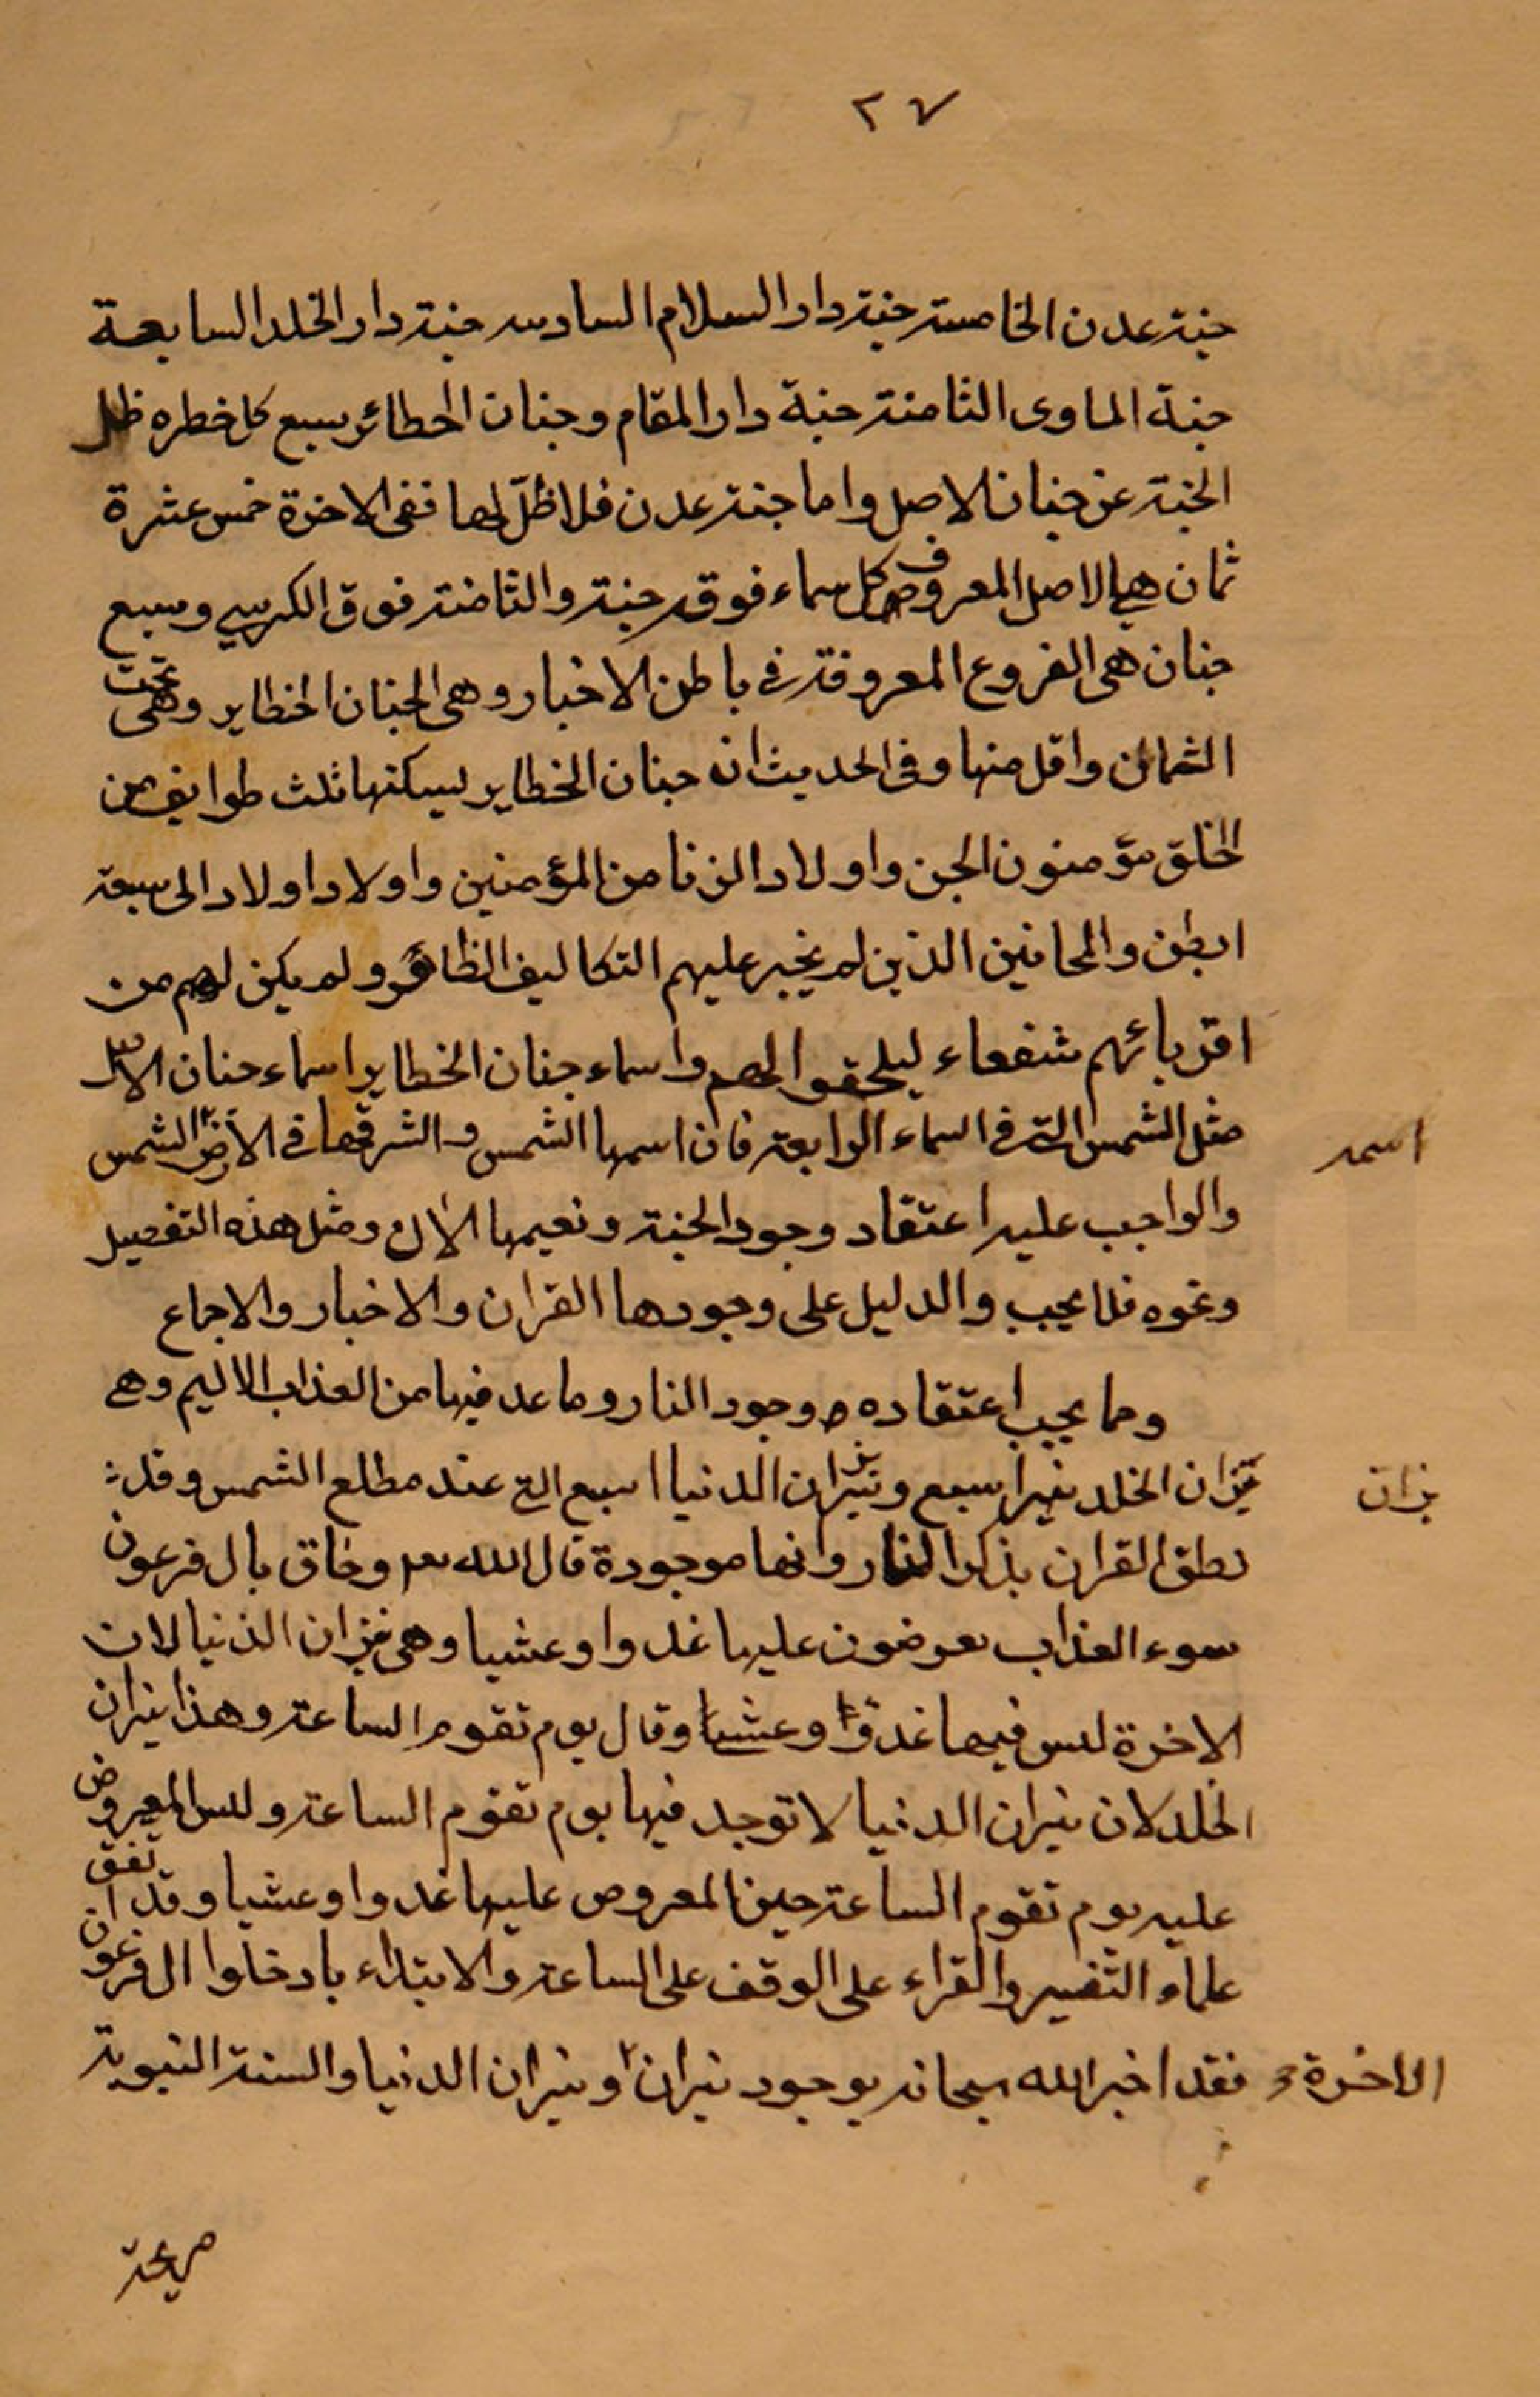 ٢٧
جنة عدن الخامسة جنة دار السلام السادسه جنة دار الخلد السابعة
جنة الماوى الثامنة جنة دار المقام وجنان الحظائر سبع كل خطره ظل
الجنة عن جنان الاصل واما جنة عدن فلا ظلّ لها ففى الاخرة خمس عشرة
ثمان هي الاصل المعروف كل سماء فوقه جنة والثامنة فوق الكرسي وسبع
جنان هى الفروع المعروفة في باطن الاخبار وهى الجنان الخطاير وهى تحت
الثمان واقل منها وفى الحديث ان جنان الخطاير يسكنها ثلث طوايف من
الخلق مؤمنون الجن واولاد الزنا من المؤمنين واولاد اولاد الى سبعة
ابطن والمجانين الذين لم يجر عليهم التكاليف الظاهر ولم يكن لهم من
اقربائهم شفعاء ليلحقوا لهم واسماء جنان الخطاير اسماء جنان الاصل
مثل الشمس التى فى السماء الرابعة فان اسمها الشمس و الشرقها في الارض الشمس
اسمه
والواجب عليه اعتقاد وجود الجنة ونعيمها الان ومثل هذه التفصيل
ونحوه فلا يجب والدليل على وجودها القران والاخبار والاجماع
ومما يجب اعتقاده وجود النار وما عد فيها من العذاب الاليم وهي
نيران الخلد سبع ونيران الدنيا سبع التي عند مطلع الشمس وقد
نيران
نطق القران بذكر النار وانها موجودة قال الله تعم وحاق بال فرعون
سوء العذاب يعرضون عليها غدوا وعشيا وهى نيران الدنيا لان
الاخرة ليس فيها غدوّا وعشيا وقال يوم تقوم الساعة وهذا نيران
الخلد لان نيران الدنيا لا توجد فيها يوم تقوم الساعة وليس المعروض
عليه يوم تقوم الساعة حين المعروض عليها غدوا وعشيا وقد اتفق
علماء التفسير والقراء على الوقف على الساعة والابتداء بادخلوا ال فرعون
فقد اخبر الله سبحانه بوجود نيران ونيران الدنيا والسنة النبوية
الاخرة
صريحة